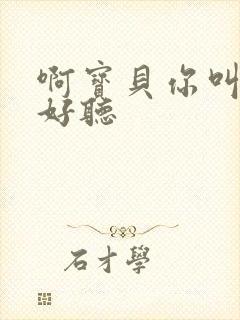 啊寶貝你叫
好聽
石才學